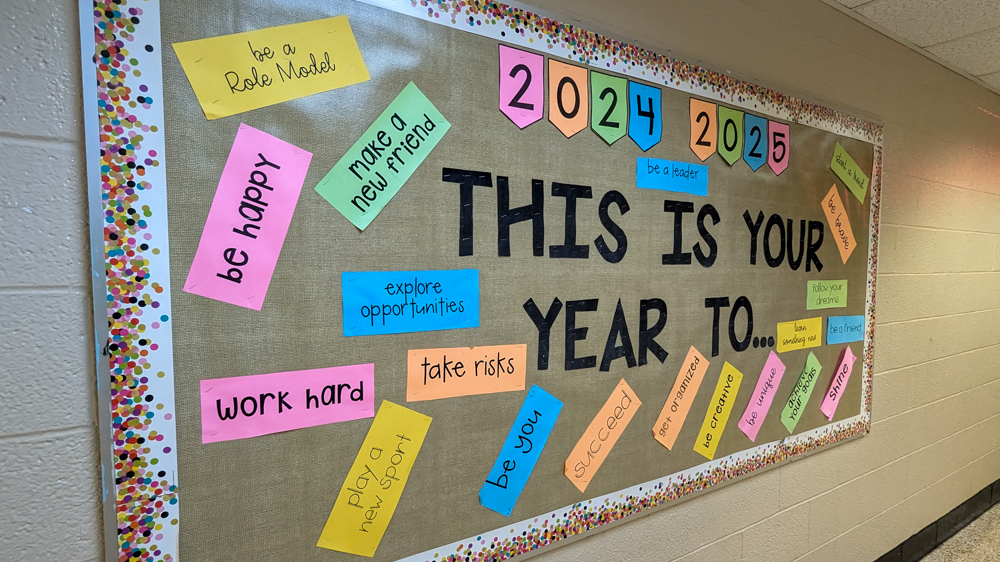 be a
Role Model
2024 2025
make a
new friend
be a leader
be happy
THIS IS YOUR
YEAR TO...
be brave
explore
opportunities
follow your
dreams
learn
something new
be a friend
take risks
work hard
play a
new sport
be you
succeed
get organized
be creative
be unique
achieve
your goals
shine